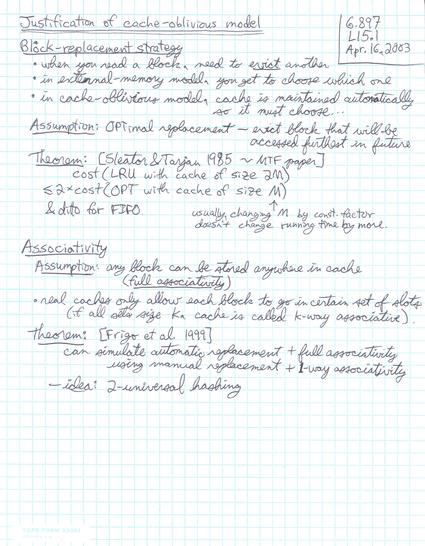 Justification of cache-oblivious model
6.897
L15.1
Apr. 16, 2003
Block-replacement strategy
• when you read a block, need to evict another
• in external-memory model, you get to choose which one
• in cache-oblivious model, cache is maintained automatically
so it must choose...
Assumption: OPTimal replacement — evict block that will be
accessed furthest in future
Theorem: [Sleator & Tarjan 1985 ~ MTF paper]
cost(LRU with cache of size 2M)
≤ 2 × cost(OPT with cache of size M)
& ditto for FIFO.
↑
usually, changing M by const. factor
doesn't change running time by more.
Associativity
Assumption: any block can be stored anywhere in cache
(full associativity)
• real caches only allow each block to go in certain set of slots
(if all sets size k, cache is called k-way associative).
Theorem: [Frigo et al. 1999]
can simulate automatic replacement + full associativity
using manual replacement + 1-way associativity
— idea: 2-universal hashing